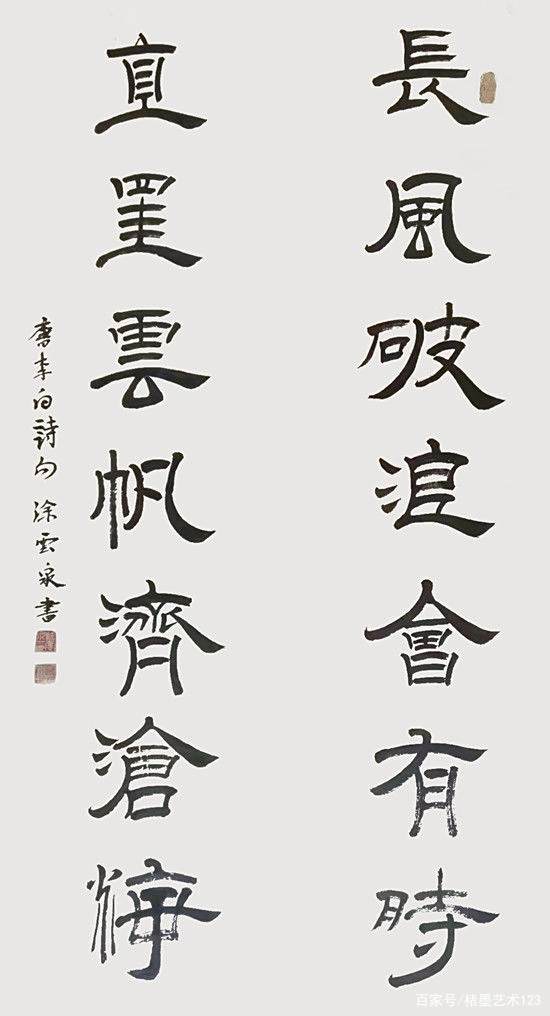 長風破浪會有時
直罣雲帆濟滄海
唐李白詩句 涂雲泉書
百家号/格墨艺术123